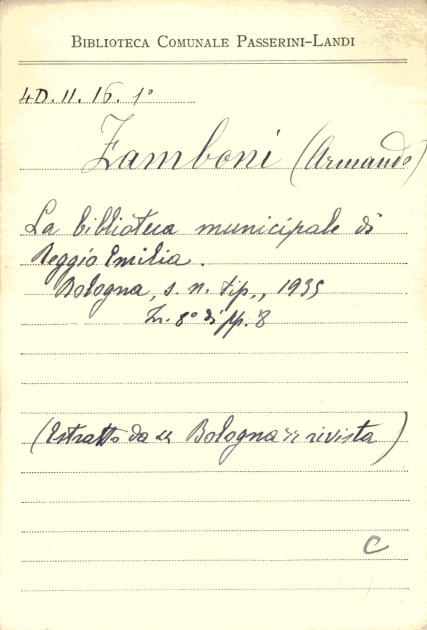 BIBLIOTECA COMUNALE PASSERINI-LANDI
4D. II. 16. 1°
Zamboni (Armando)
La biblioteca municipale di
Reggio Emilia.
Bologna, s. n. tip., 1935
In. 8° di pp. 8
(Estratto da "Bologna" rivista)
C